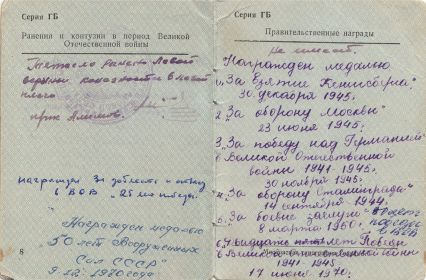 Серия ГБ
Ранения и контузии в период Великой
Отечественной войны
ранение левой
верхней конечности в левой
плеча
награжден За доблесть и отвагу
в ВОВ
"Награжден медалью
50 лет Вооруженных
Сил СССР"
8
Серия ГБ
Правительственные награды
не имеет.
Награжден медалью
1. За Взятие Кенигсберга"
30 декабря 1945г.
2. За оборону Москвы"
23 июня 1945г.
3. За победу над Германией
в Великой Отечественной
войны 1941-1945
30 ноября 1945г.
4. За оборону Сталинграда"
14 сентября 1944г.
5. За боевые заслуги"
8 марта 1950г.
лет Победы
в Великой Отечественной войне
1941-1945
17 июня 1970г.